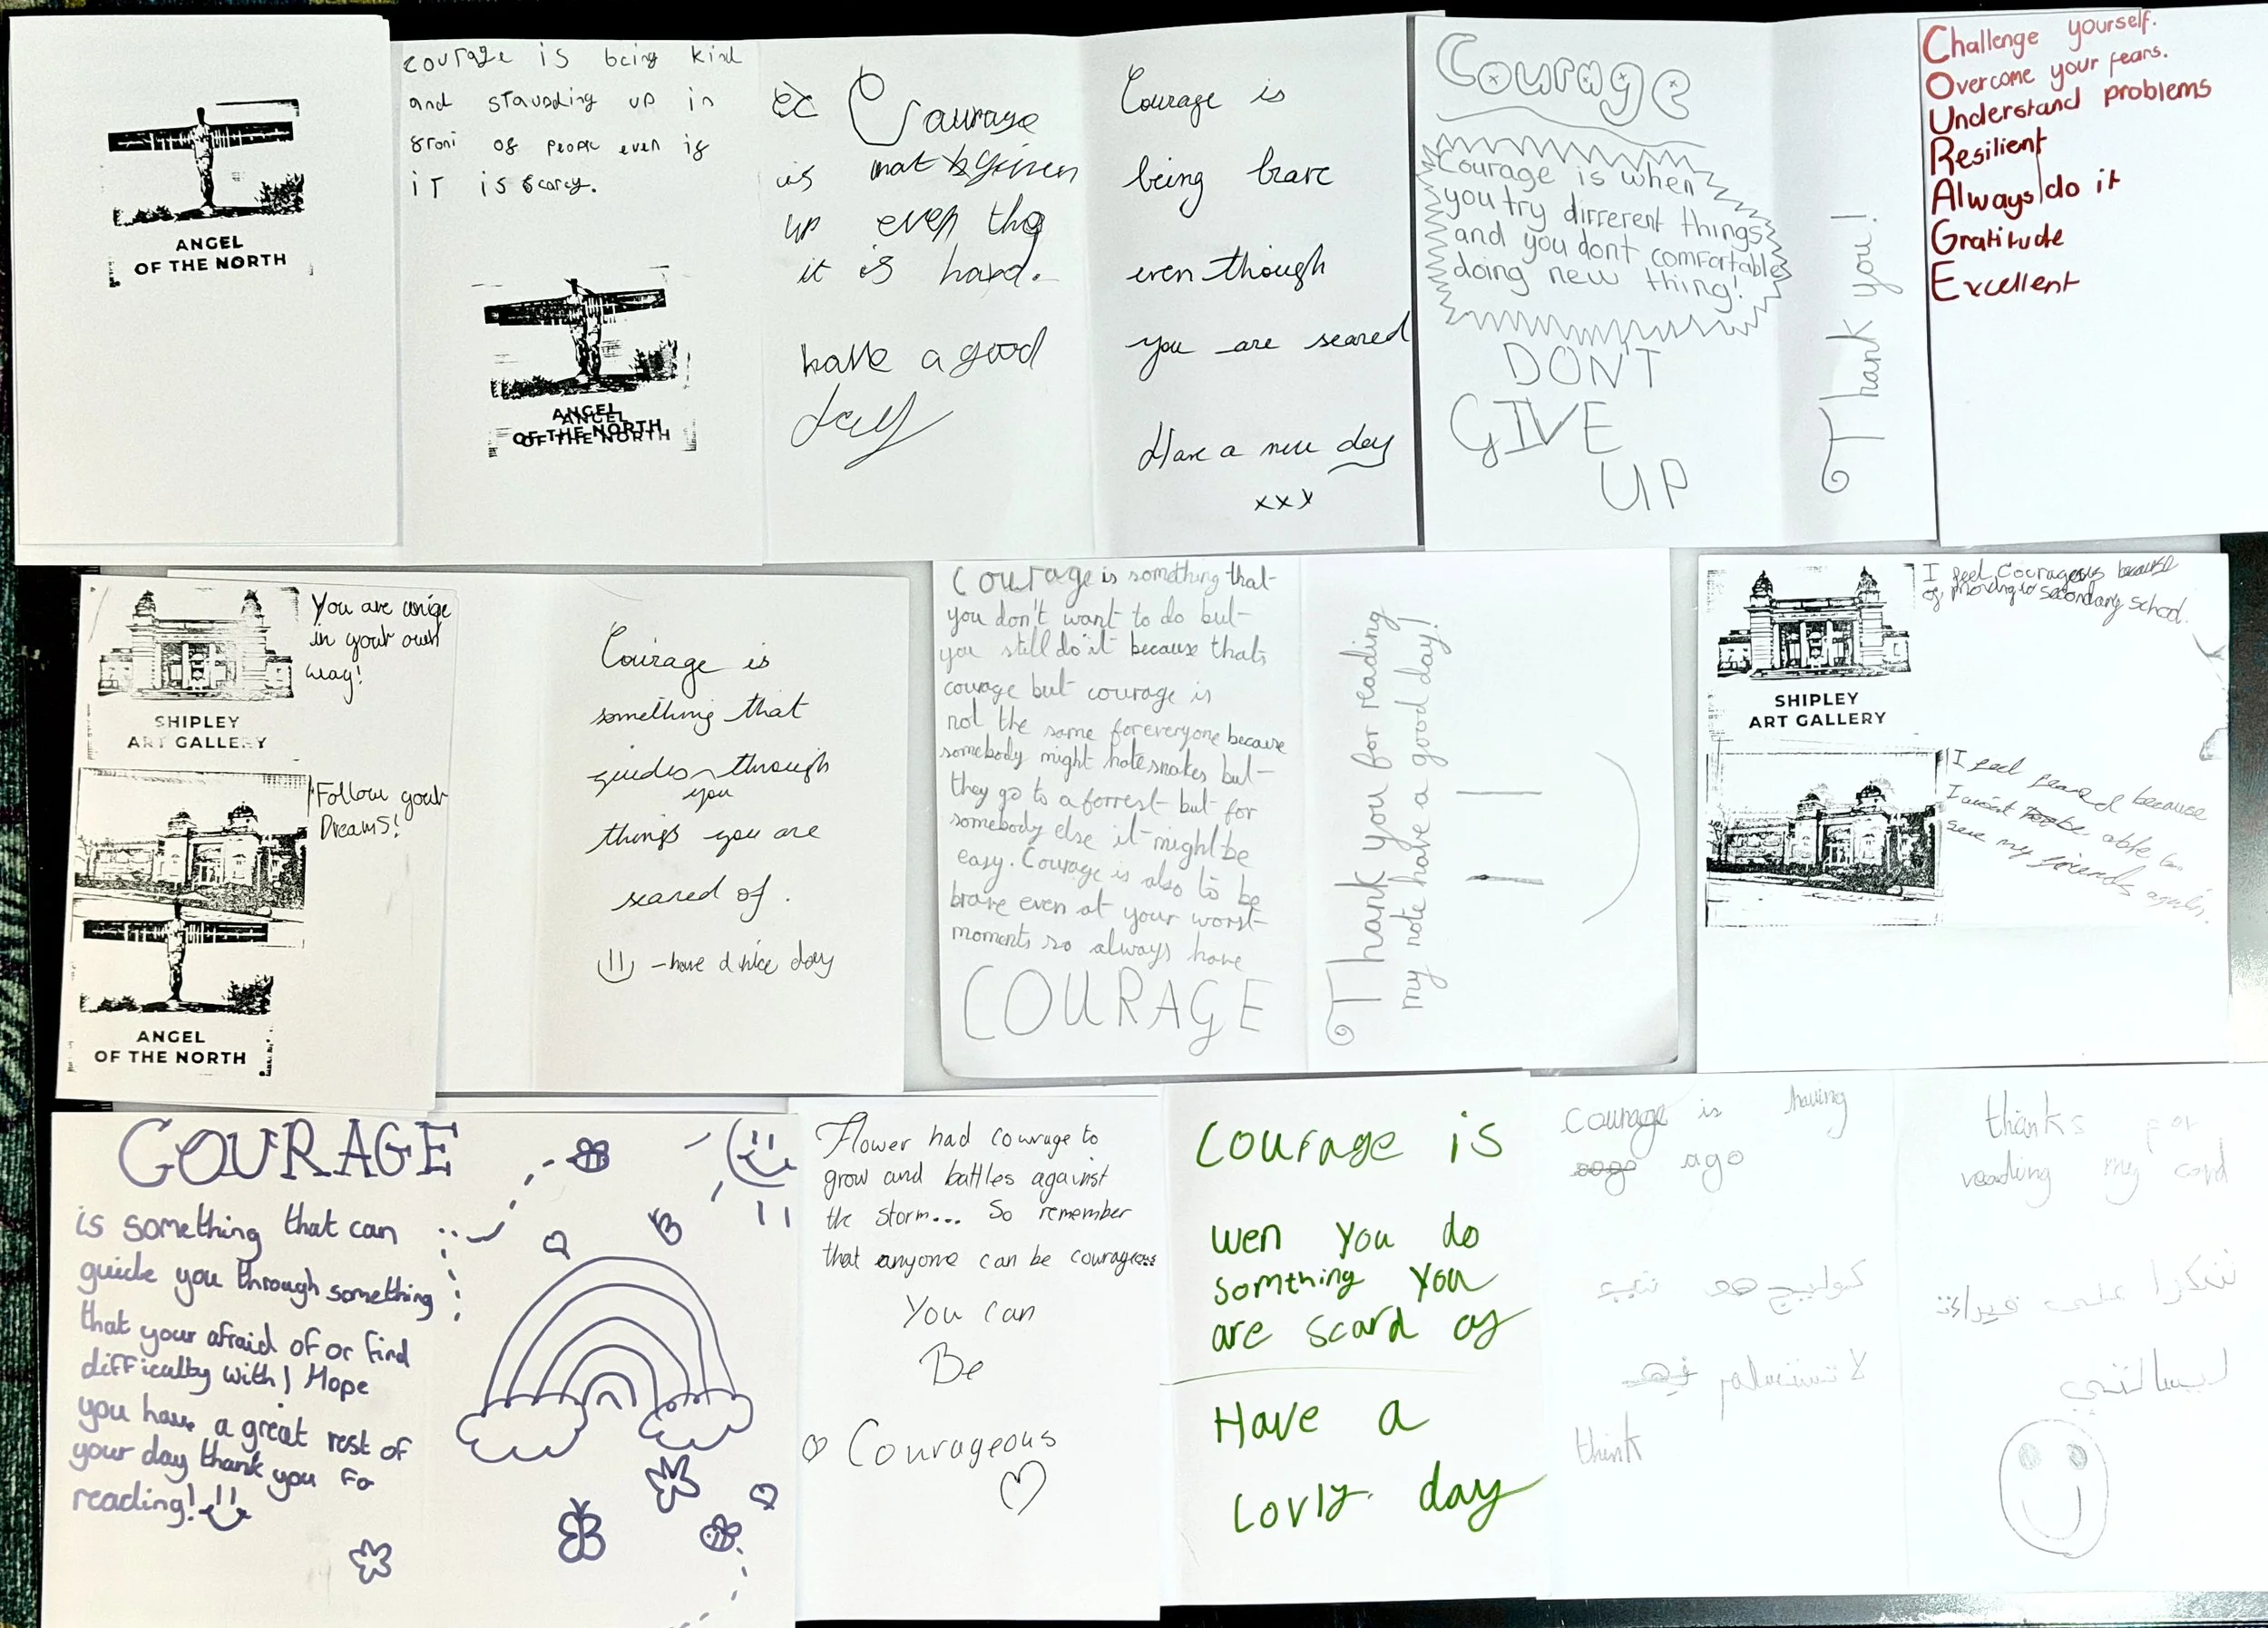 ANGEL
OF THE NORTH
courage is being kind
and stavnding up in
front of people even if
it is scarcy.
ANGEL
ANGEL
OF THE NORTH
OF THE NORTH
Caurage
is not given
up even tho
it is hard.
have a good
day
Courage is
being brave
even though
you are scared
Have a nice day
xxx
Courage
Courage is when
you try different things
and you dont comfortable
doing new thing!
DON'T
GIVE
UP
Thank you!
Challenge yourself.
Overcome your fears.
Understand problems
Resilient
Always do it
Gratitude
Excellent
SHIPLEY
ART GALLERY
You are uniqe
in your own
way!
Follow your
Dreams!
ANGEL
OF THE NORTH
Courage is
something that
guides you through
things you are
scared of.
- have a nice day
Courage is something that
you don't want to do but
you still do it because thats
courage but courage is
not the same for everyone because
somebody might hate snakes but
they go to a forrest but for
somebody else it might be
easy. Courage is also to be
brave even at your worst
moments so always have
COURAGE
Thank you for reading
my note have a good day!
SHIPLEY
ART GALLERY
I feel Courageous because
of moving to secondary school.
I feel scared because
I wont be able to
see my friends again.
COURAGE
is something that can
guide you through something
that your afraid of or find
difficalty with! Hope
you have a great rest of
your day thank you for
reading!
Flower had courage to
grow and battles against
the storm... So remember
that anyone can be courageous
You can
Be
Courageous
Courage is
wen you do
somthing you
are scard of
Have a
Lovly day
Courage is having
ago
هو
لا تستسلم
think
thanks for
reading my card
شكرا على